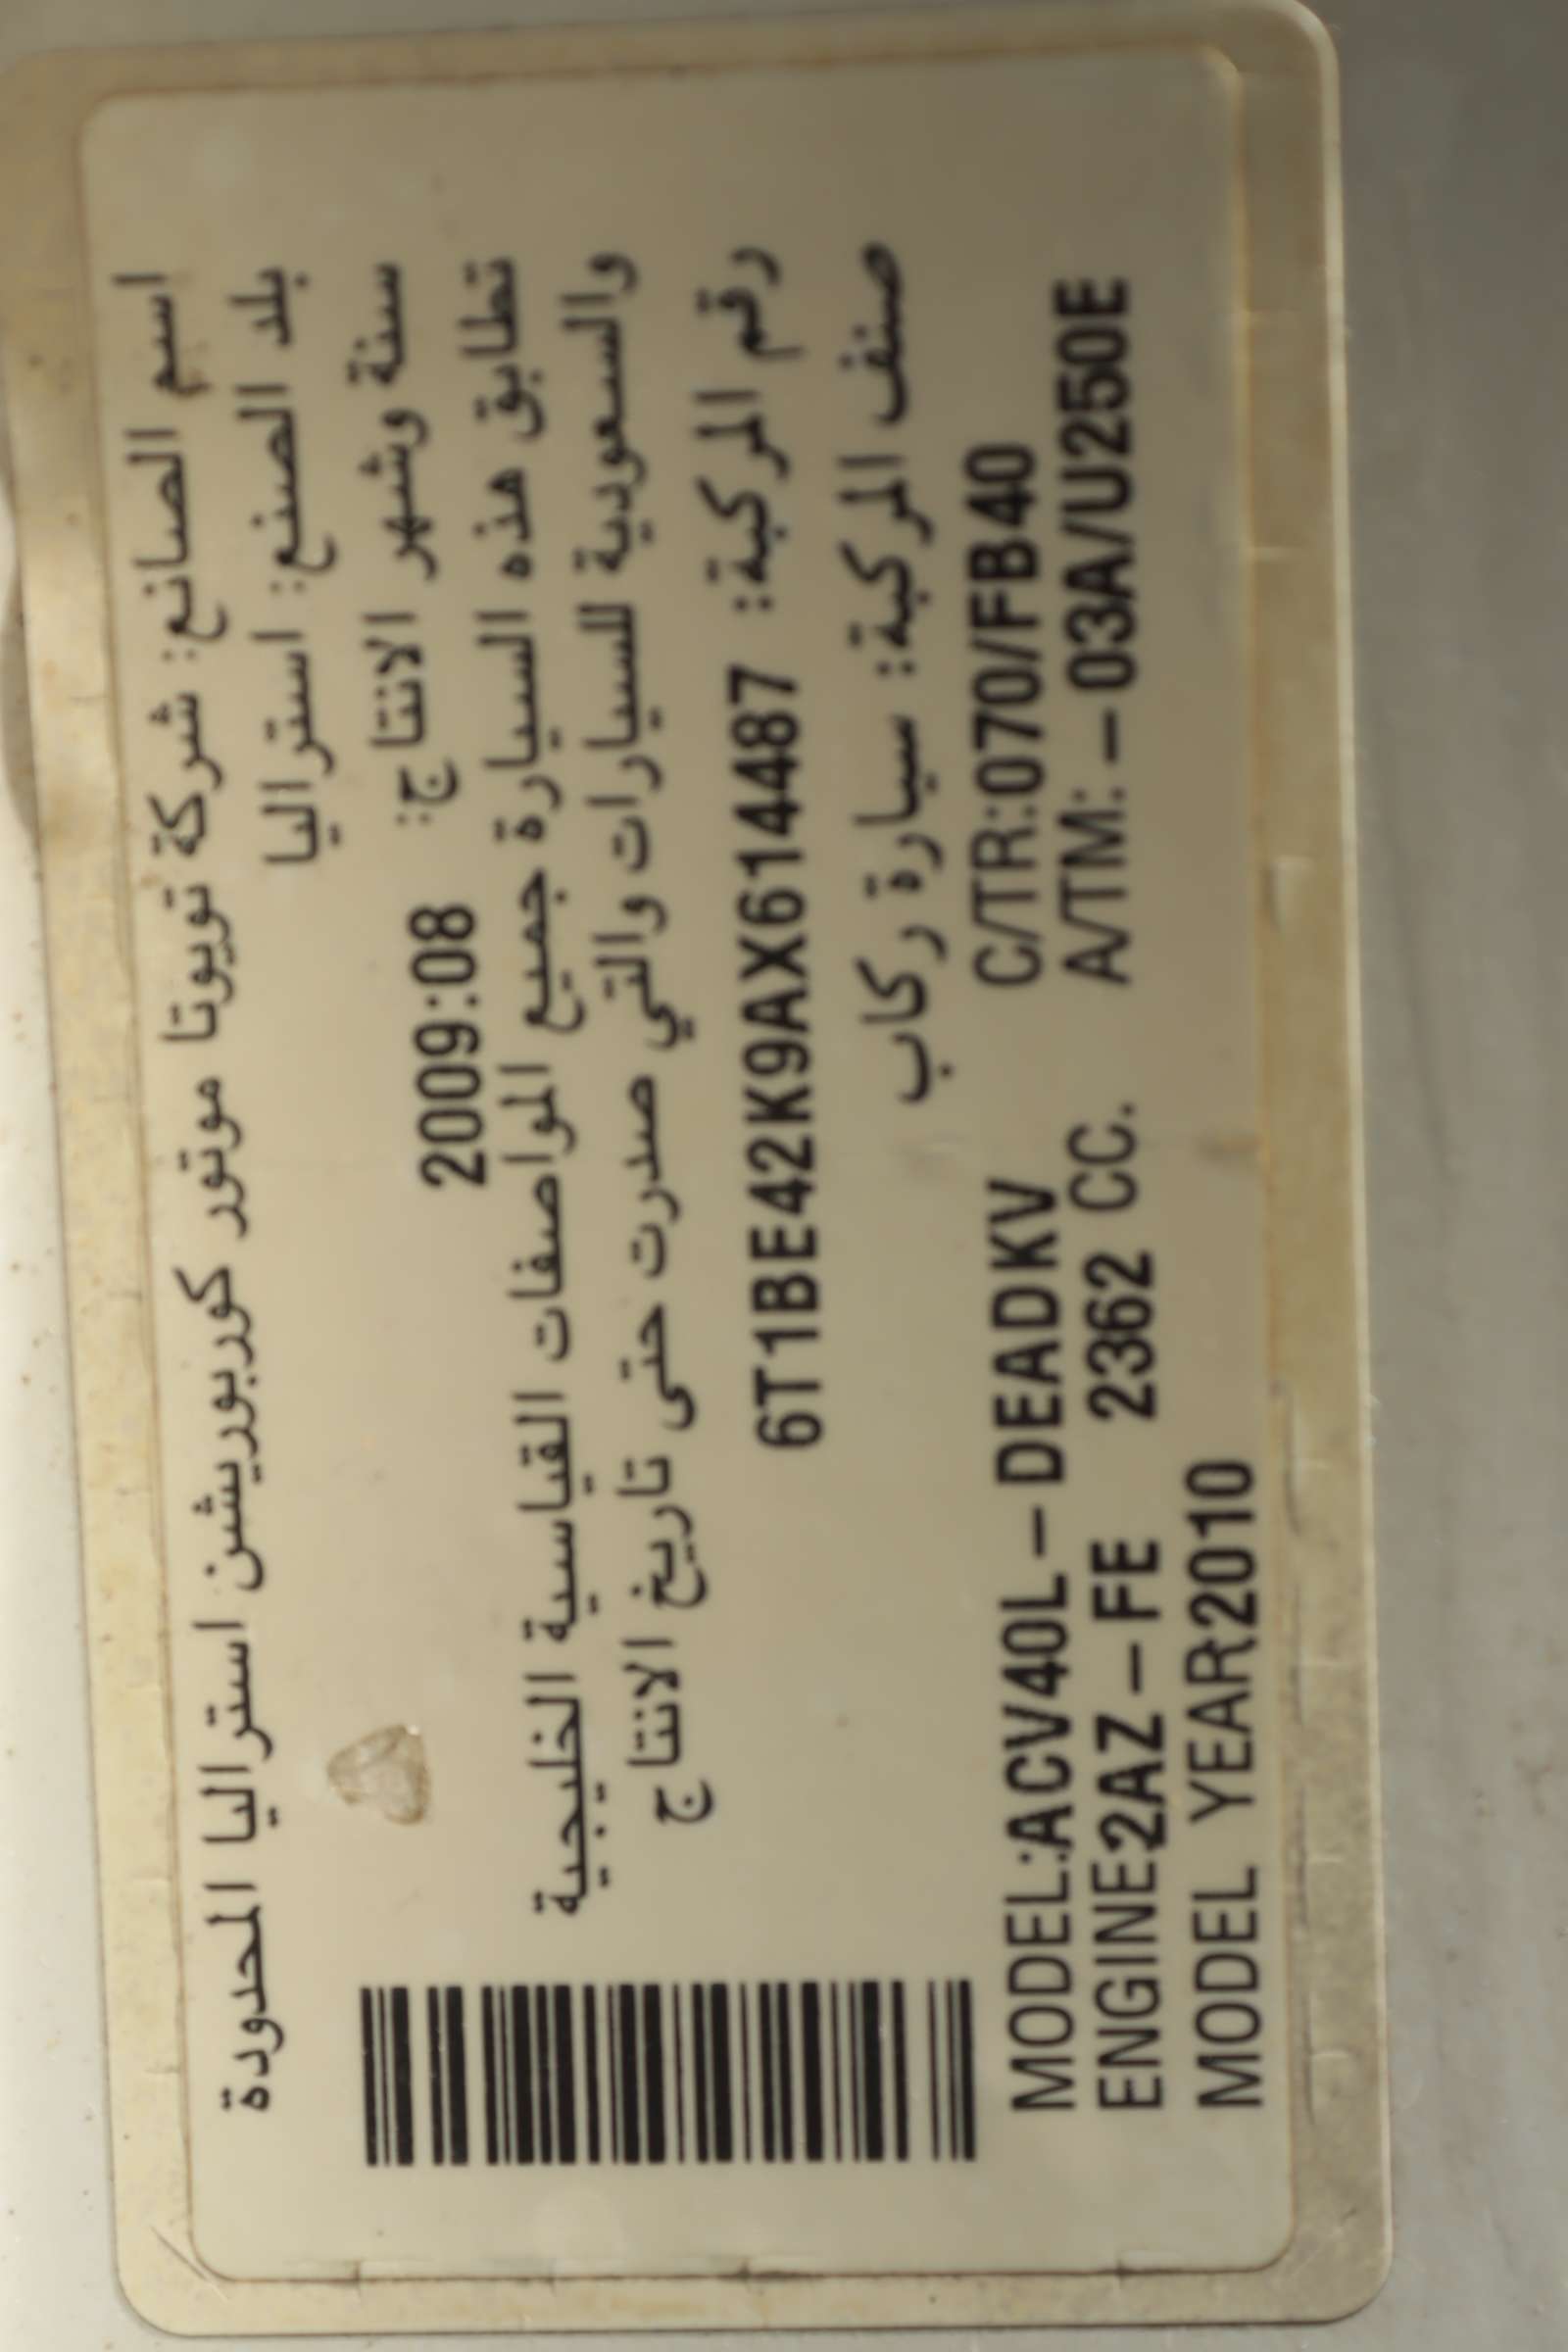 اسم الصانع: شركة تويوتا موتور كوربوريشن استراليا المحدودة
بلد الصنع: استراليا
سنة وشهر الانتاج: 2009:08
تطابق هذه السيارة جميع المواصفات القياسية الخليجية
والسعودية للسيارات والتي صدرت حتى تاريخ الانتاج
رقم المركبة: 6T1BE42K9AX614487
صنف المركبة: سيارة ركاب
MODEL:ACV40L-DEADKV C/TR:070/FB40
ENGINE:2AZ-FE 2362 CC. A/TM:-03A/U250E
MODEL YEAR:2010